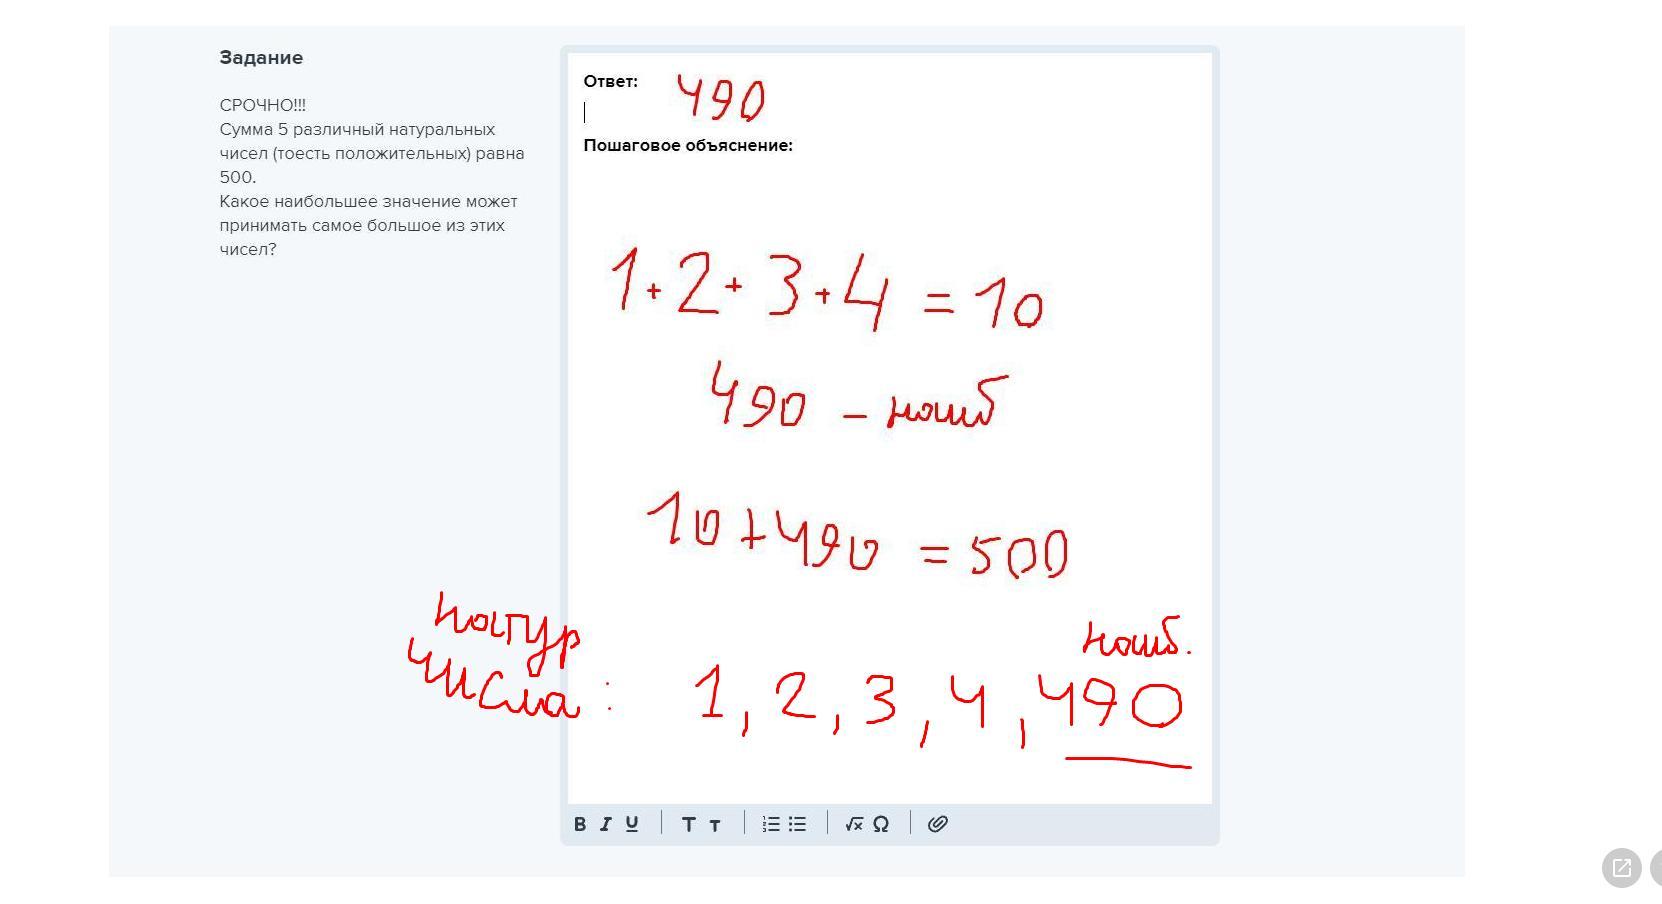 Задание
СРОЧНО!!!
Сумма 5 различный натуральных
чисел (тоесть положительных) равна
500.
Какое наибольшее значение может
принимать самое большое из этих
чисел?
Ответ: 490
Пошаговое объяснение:
1 + 2 + 3 + 4 = 10
490 – наиб
10 + 490 = 500
натур
числа: 1, 2, 3, 4, 490
наиб.
B I U T T √x Ω